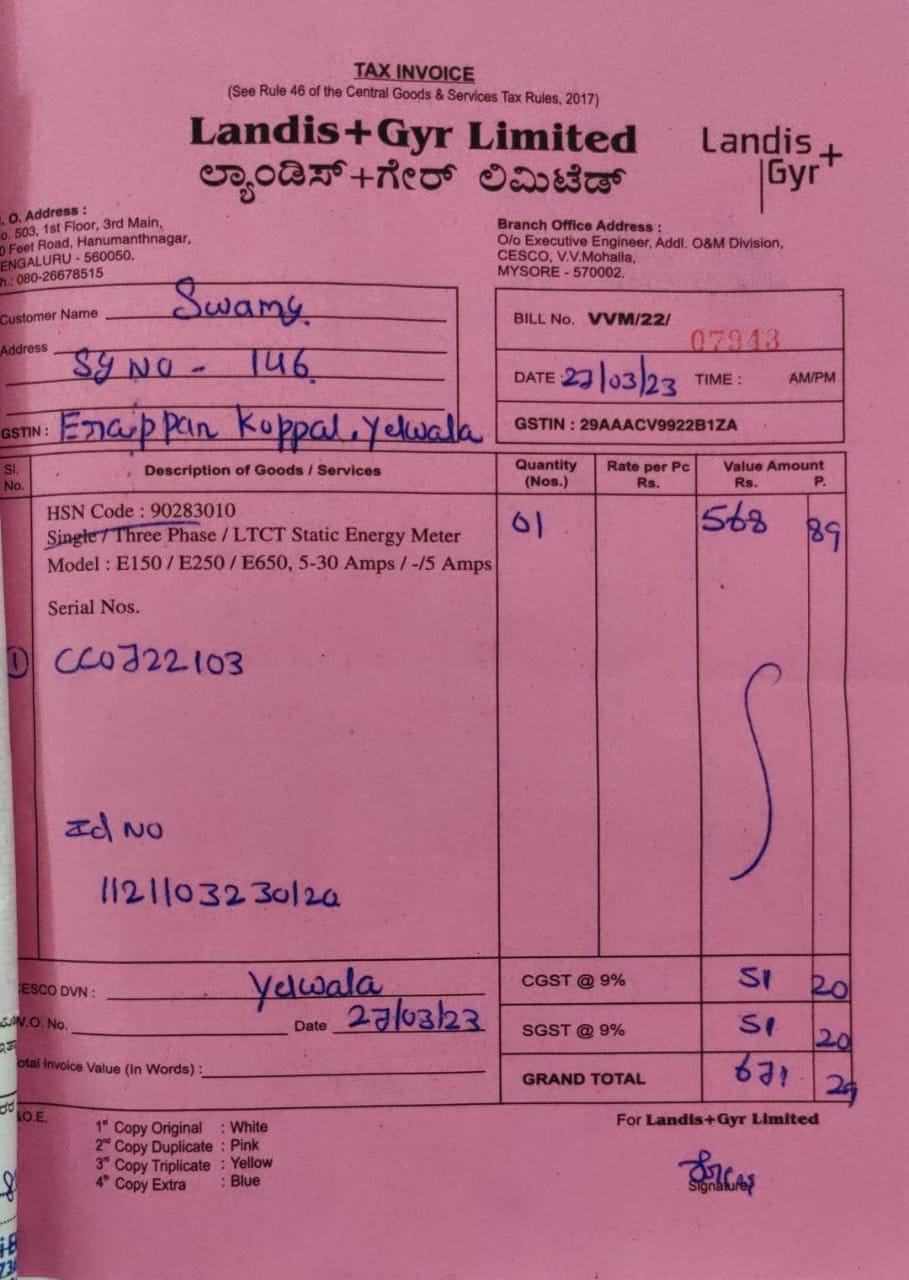 TAX INVOICE
(See Rule 46 of the Central Goods & Services Tax Rules, 2017)
Landis+Gyr Limited
ಲ್ಯಾಂಡಿಸ್+ಗೇರ್ ಲಿಮಿಟೆಡ್
Landis+
Gyr
. O. Address :
o. 503, 1st Floor, 3rd Main,
0 Feet Road, Hanumanthnagar,
ENGALURU - 560050.
h.: 080-26678515
Branch Office Address :
O/o Executive Engineer, Addl. O&M Division,
CESCO, V.V.Mohalla,
MYSORE - 570002.
Customer Name Swamy
Address
SY NO - 146
GSTIN : Enaippan Koppal, Yelwala
BILL No. VVM/22/ 07943
DATE : 27/03/23 TIME : AM/PM
GSTIN : 29AAACV9922B1ZA
Sl. No. Description of Goods / Services Quantity (Nos.) Rate per Pc Rs. Value Amount Rs. P.
HSN Code : 90283010 01 568 89
Single / Three Phase / LTCT Static Energy Meter
Model : E150 / E250 / E650, 5-30 Amps / -/5 Amps
Serial Nos.
1 CC0722103
Id NO
112110323012
ESCO DVN : Yelwala
W.O. No. Date 27/03/23
otal Invoice Value (In Words) :
CGST @ 9% 51 20
SGST @ 9% 51 20
GRAND TOTAL 671 29
.O.E.
1st Copy Original : White
2nd Copy Duplicate : Pink
3rd Copy Triplicate : Yellow
4th Copy Extra : Blue
For Landis+Gyr Limited
Signature